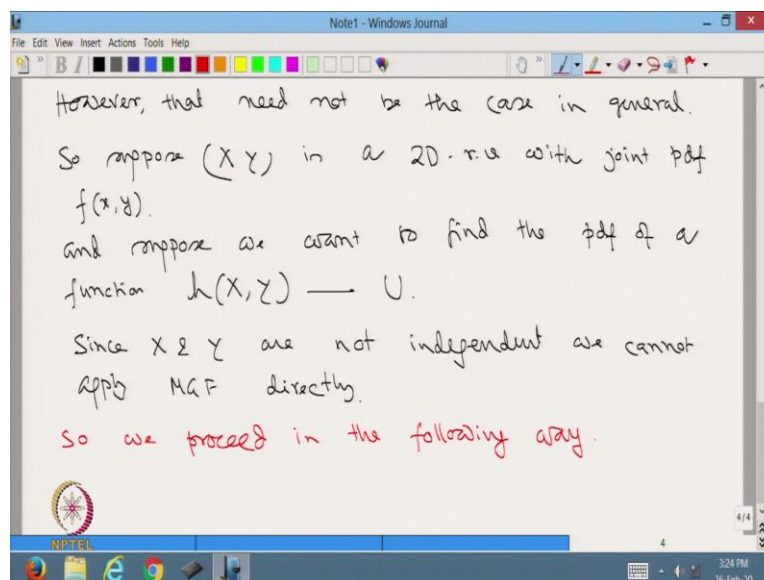 Note1 - Windows Journal
File Edit View Insert Actions Tools Help
However, that need not be the case in general.
So suppose (X Y) is a 2D-r.v with joint pdf
f(x,y).
and suppose we want to find the pdf of a
function h(X,Y) — U.
Since X & Y are not independent we cannot
apply MGF directly.
So we proceed in the following way.
NPTEL
4/4
4
3:24 PM
26-Feb-20